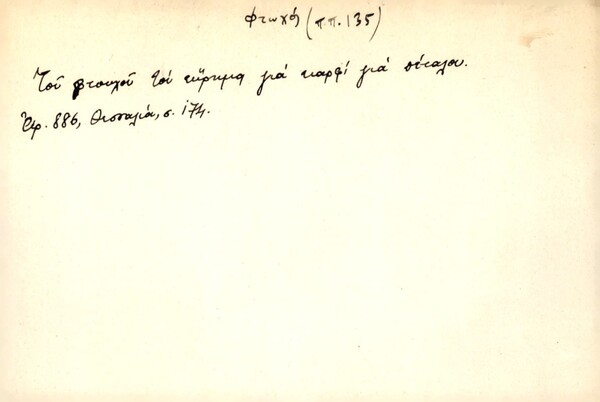 φτωχός (π.π. 135)
Τοῦ φτουχοῦ τοὐ εὕρημα γιά καρφί γιά πέταλου.
Ἀρ. 886, Θεσσαλία, σ. 174.